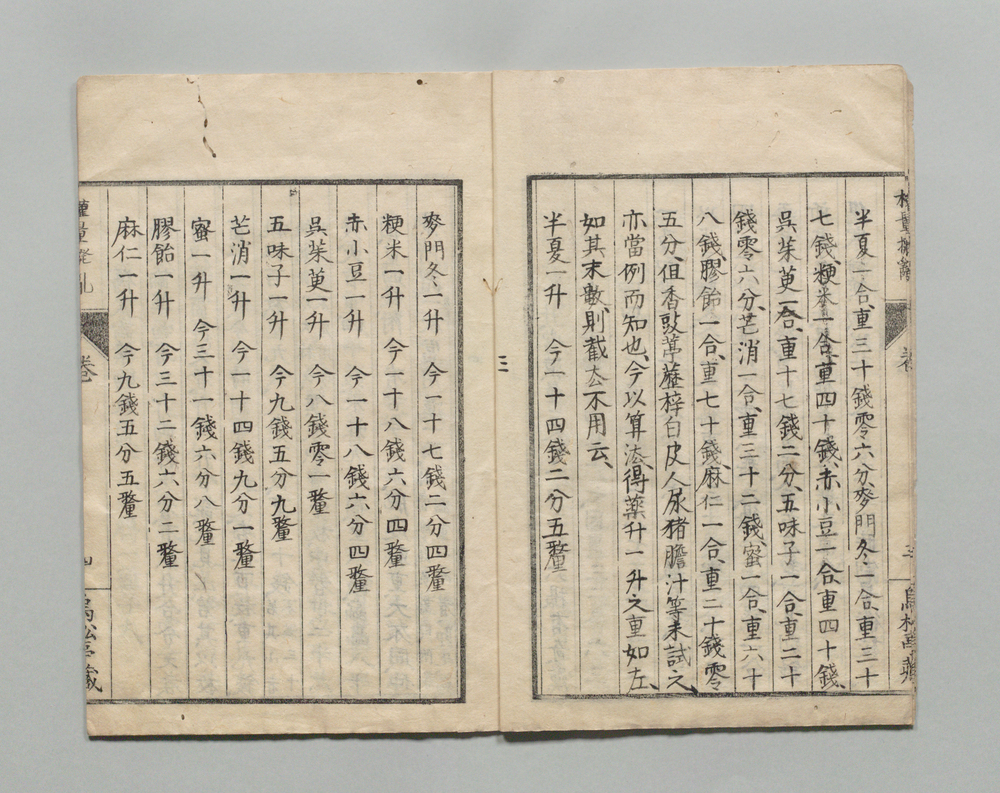 半夏一合、重三十錢零六分、麥門冬一合、重三十
七錢、粳米一合、重四十錢、赤小豆一合、重四十錢、
吳茱萸一合、重十七錢二分、五味子一合、重二十
錢零六分、芒消一合、重三十二錢、蜜一合、重六十
八錢、膠飴一合、重七十錢、麻仁一合、重二十錢零
五分、但香豉葶藶梓白皮人尿猪膽汁等未試之、
亦當例而知也、今以算法得藥升一升之重如左、
如其末數則截去不用云、
半夏一升 今一十四錢二分五釐
三
麥門冬一升 今一十七錢二分四釐
粳米一升 今一十八錢六分四釐
赤小豆一升 今一十八錢六分四釐
吳茱萸一升 今八錢零一釐
五味子一升 今九錢五分九釐
芒消一升 今一十四錢九分一釐
蜜一升 今三十一錢六分八釐
膠飴一升 今三十二錢六分二釐
麻仁一升 今九錢五分五釐
卷 四